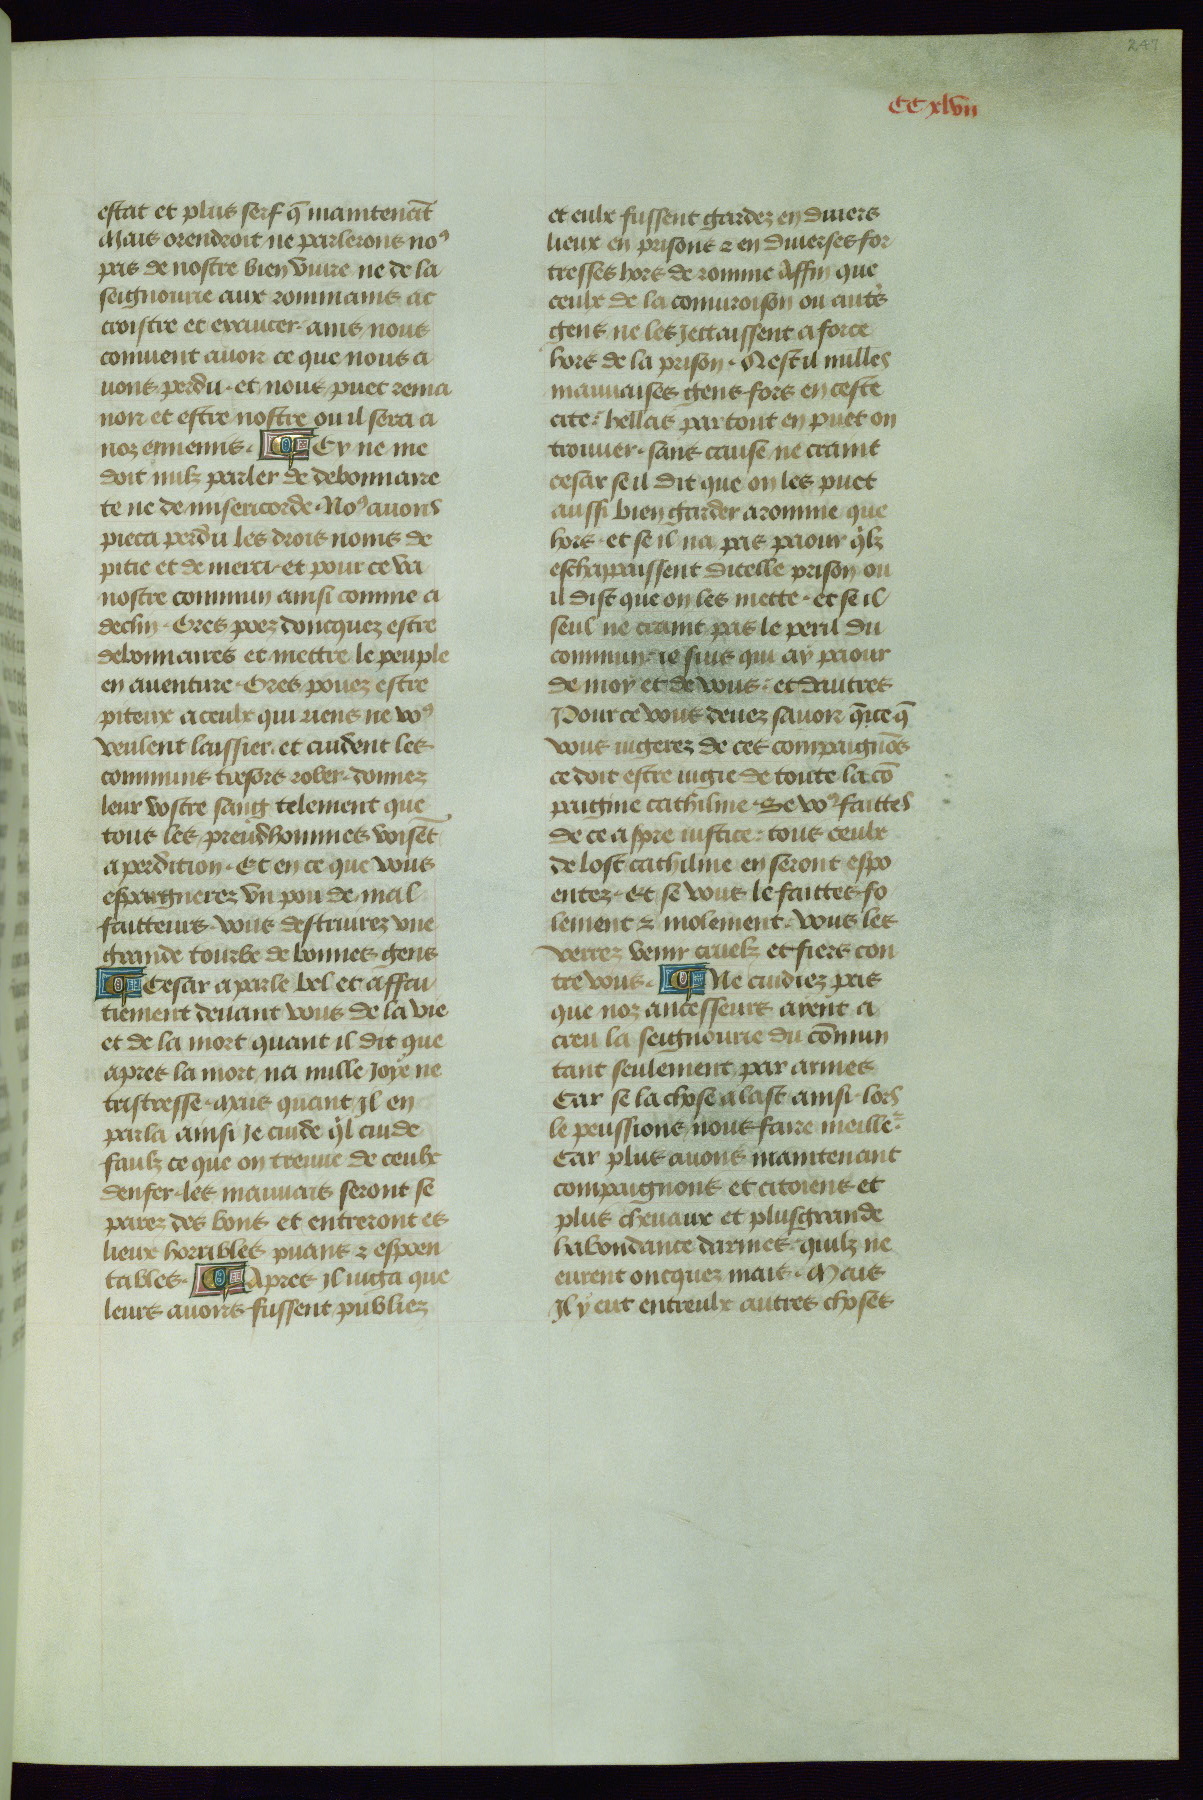 247
CC xlvii
estat et plus serf q̃ maintenãt
Mais orendroit ne parlerons noꝰ
pas de nostre bien viure ne de la
seignourie aux rommains ac
croistre et exaucer ains nous
conuient auoir ce que nous a
uons perdu · et nous puet rema
noir et estre nostre ou il sera a
noz ennemis · Cy ne me
doit nulz parler de debonnaire
te ne de misericorde · Noꝰ auons
pieca perdu les drois noms de
pitie et de merci · et pour ce va
nostre commun ainsi comme a
declin · Ores poez doncquez estre
debonnaires et mettre le peuple
en auenture · Ores pouez estre
piteux a ceulx qui riens ne voꝰ
veulent laissier · et cuident les
communs tresors rober · donnez
leur vostre sang telement que
tous les preudhommes voisẽt
a perdition · Et en ce que vous
espargnerez vn pou de mal
faitteurs · vous destruirez vne
grande tourbe de bonnes gens
Cesar a parle bel et affai
tiement deuant vous de la vie
et de la mort quant il dit que
apres la mort na nulle Joye ne
tristresse · mais quant Jl en
parla ainsi Je cuide q̉l cuide
faulz ce que on treuue de ceulx
denfer · les mauuais seront se
parez des bons et entreront es
lieux horribles puans ⁊ espoen
tables · Apres Jl iuga que
leurs auoirs fussent publiez
et eulx fussent gardez en diuers
lieux en prisons ⁊ en diuerses for
tresses hors de romme Affin que
ceulx de la coniuroison ou autẽs
gens ne les Jettaissent a force
hors de la prison · Nest il nulles
mauuaises gens fors en ceste
cite : hellas par tout en puet on
trouuer · sans cause ne craint
cesar se il dit que on les puet
aussi bien garder a romme que
hors · et se il na pas paour q̉lz
eschapaissent dicelle prison ou
il dist que on les mette · et se il
seul ne craint pas le peril du
commun · ie suis qui ay paour
de moy et de vous : et dautres
Pour ce vous deuez sauoir q̃ ce q̃
vous iugerez de ces compaignõs
ce doit estre iugie de toute la cõ
paignie cathiline · Se voꝰ faittes
de ce aspre iustice : tous ceulx
de lost cathiline en seront espo
entez · Et se vous le faittes fo
lement ⁊ molement · vous les
verrez venir cruelz et fiers con
tre vous · Ne cuidiez pas
que noz ancesseurs aient a
creu la seignourie du cõmun
tant seulement par armes
Car se la chose alast ainsi · lors
le peussions nous faire meille᷑
Car plus auons maintenant
compaignons et citoiens et
plus cheuaux et plus grande
habondance darmes · quilz ne
eurent oncquez mais · Mais
Jl y eut entreulx autres choses